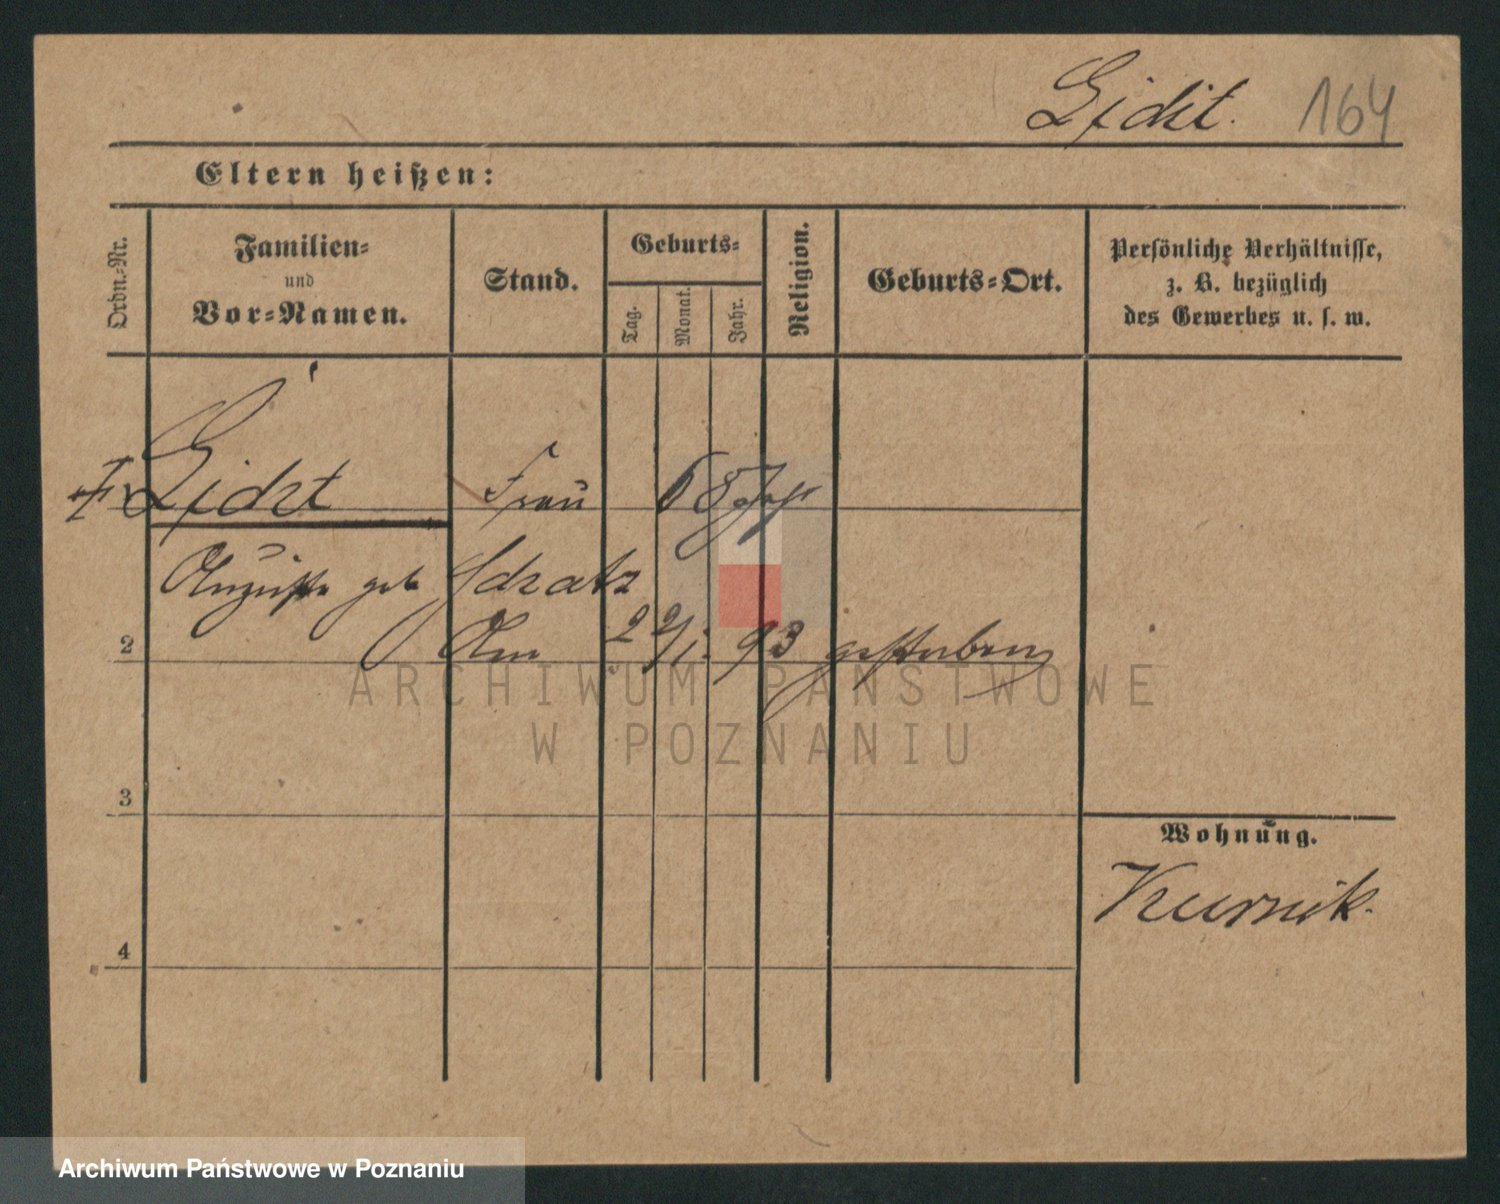 Licht. 164
Eltern heißen:
Ordn.-Nr.
Familien-
und
Vor-Namen.
Stand.
Geburts-
Tag.
Monat.
Jahr.
Religion.
Geburts-Ort.
Persönliche Verhältnisse,
z. B. bezüglich
des Gewerbes u. s. w.
Licht Frau 68 Jahr
Auguste geb Schatz
2 Am 22/1. 93 gestorben
3
Wohnung.
Kurnik.
4
ARCHIWUM PAŃSTWOWE
W POZNANIU
Archiwum Państwowe w Poznaniu